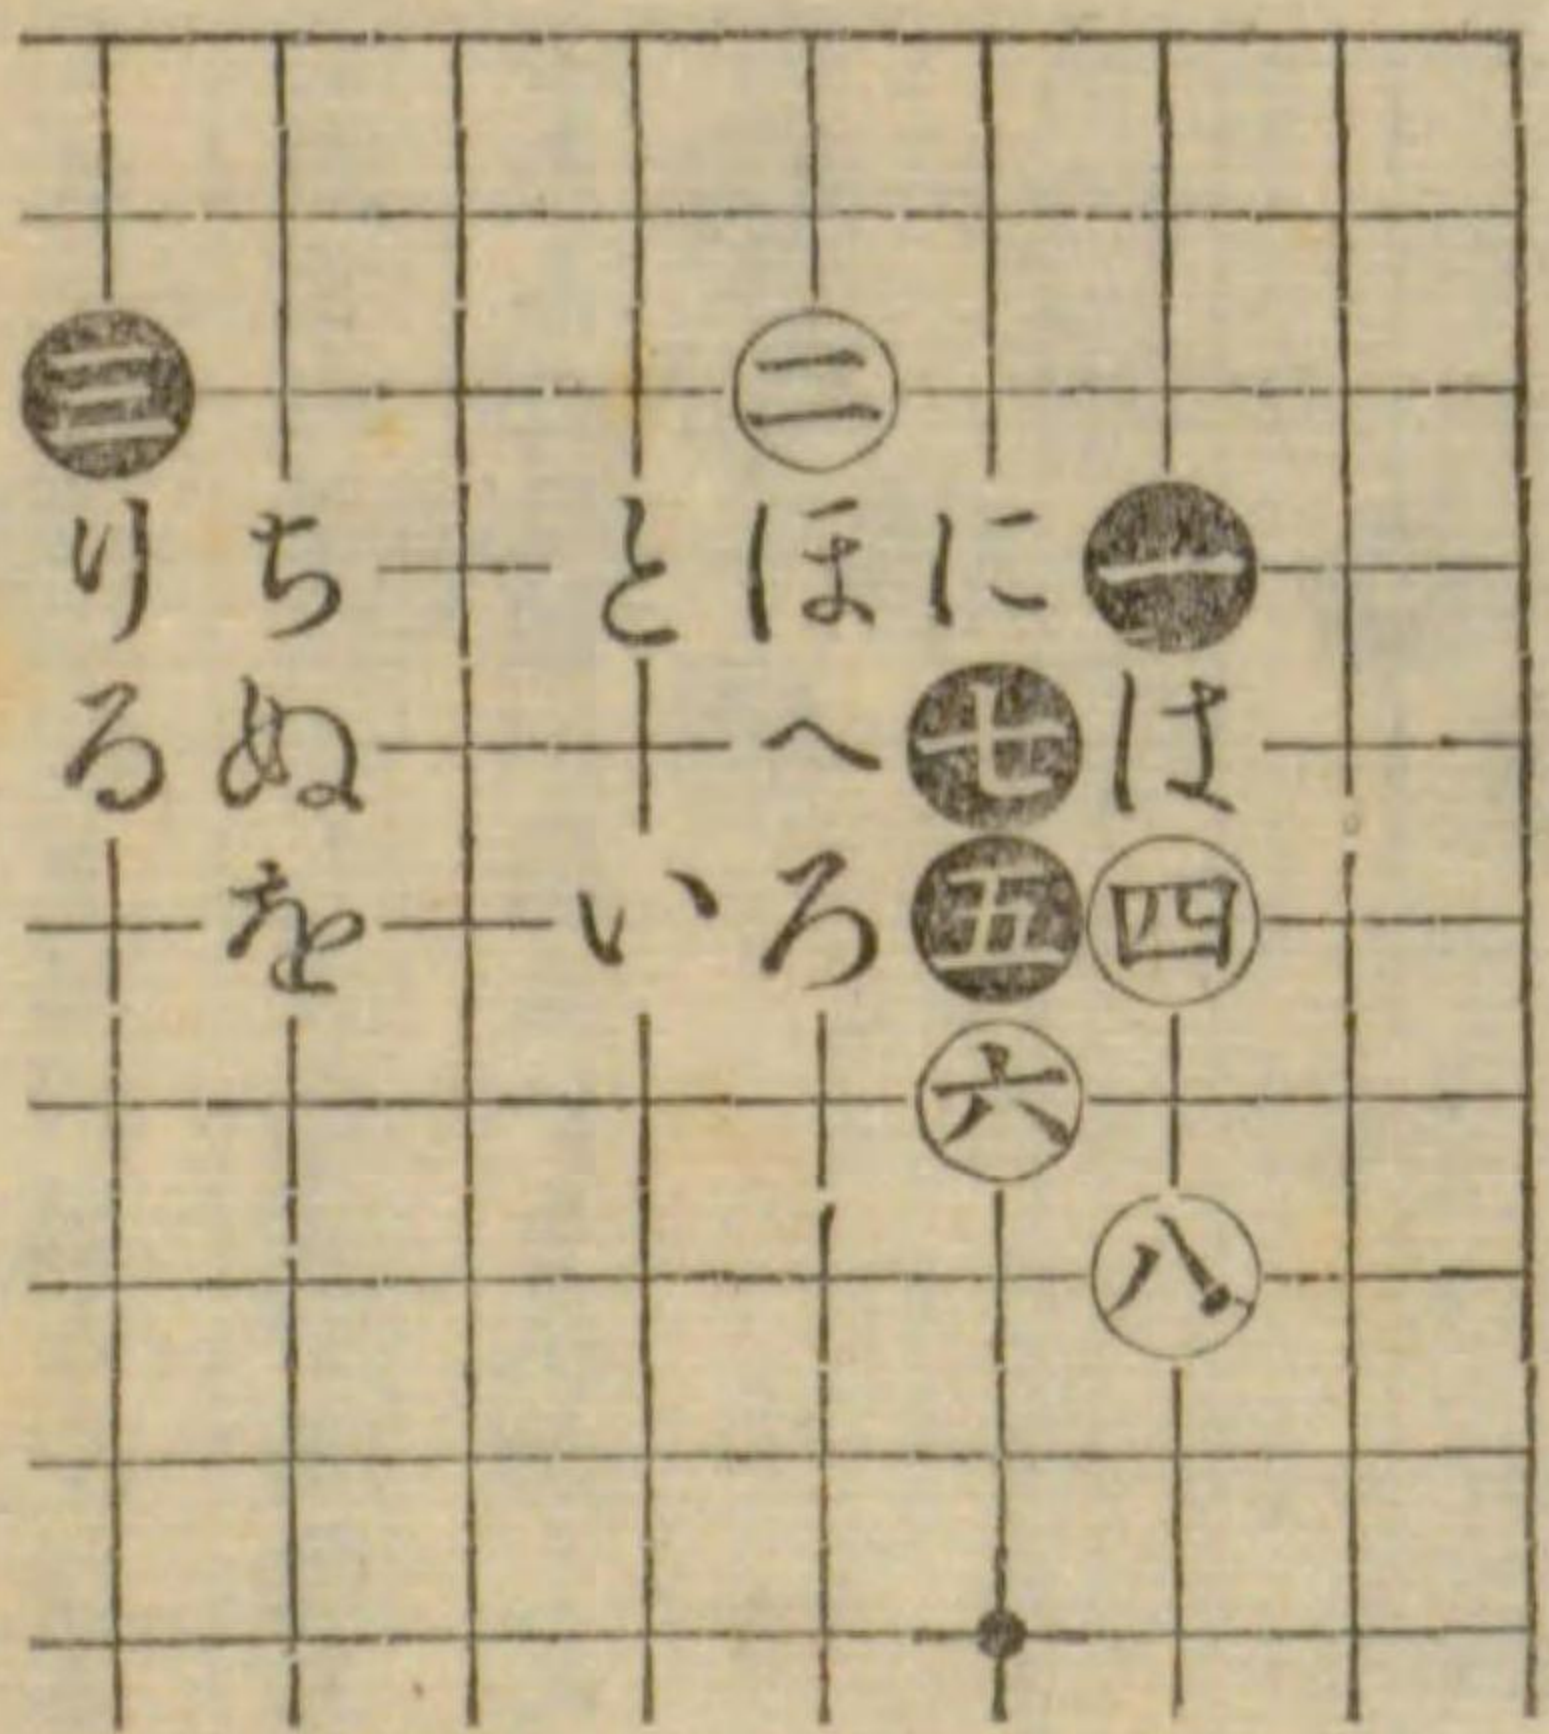 三 二
り ち と ほ に 一
る ぬ へ 七 は
を い ろ 五 四
六
八